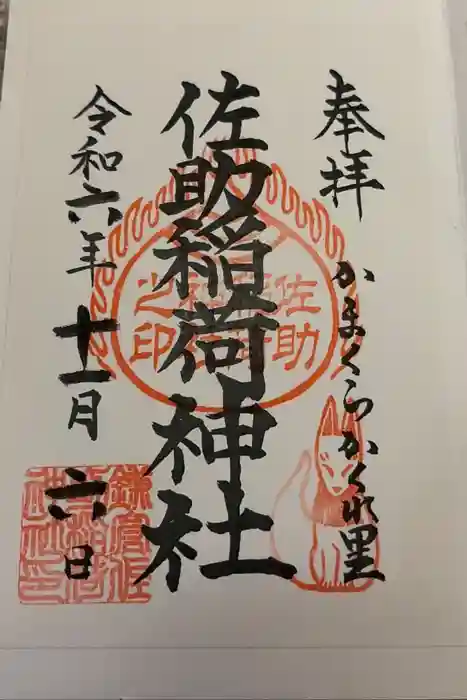 奉拝
かまくらかくれ里
佐助稲荷神社
令和六年十一月六日
佐助
稲荷
神社
之印
鎌倉佐